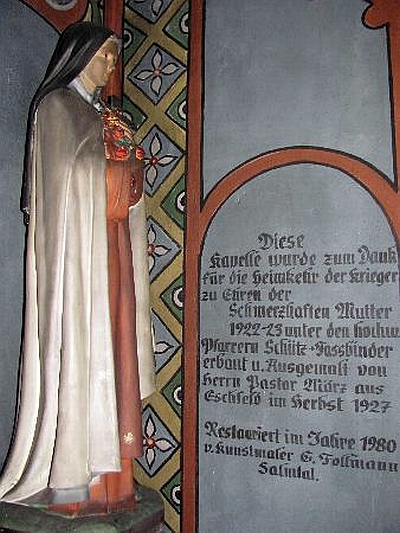 Diese
Kapelle wurde zum Dank
für die Heimkehr der Krieger
zu Ehren der
Schmerzhaften Mutter
1922-23 unter den hochw.
Pfarrern Schütz-Fassbinder
erbaut u. Ausgemalt von
Herrn Pastor März aus
Eschfeld im Herbst 1927
Restauriert im Jahre 1980
v. Kunstmaler G. Follmann
Salmtal.